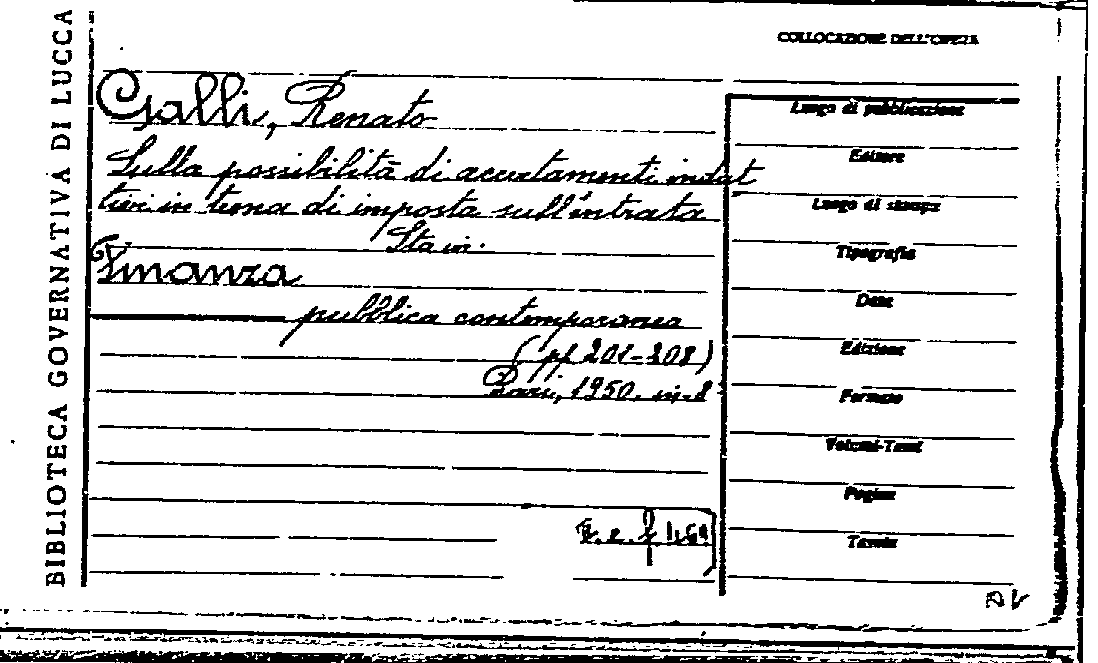 BIBLIOTECA GOVERNATIVA DI LUCCA
COLLOCAZIONE DELL'OPERA
Galli, Renato
Sulla possibilità di accertamenti indut
tivi in tema di imposta sull'entrata
Sta in:
Finanza
pubblica contemporanea
(pp 201-208)
Bari, 1950. in-8°
Luogo di pubblicazione
Editore
Luogo di stampa
Tipografia
Data
Edizione
Formato
Volumi-Tomi
Pagine
Tavole